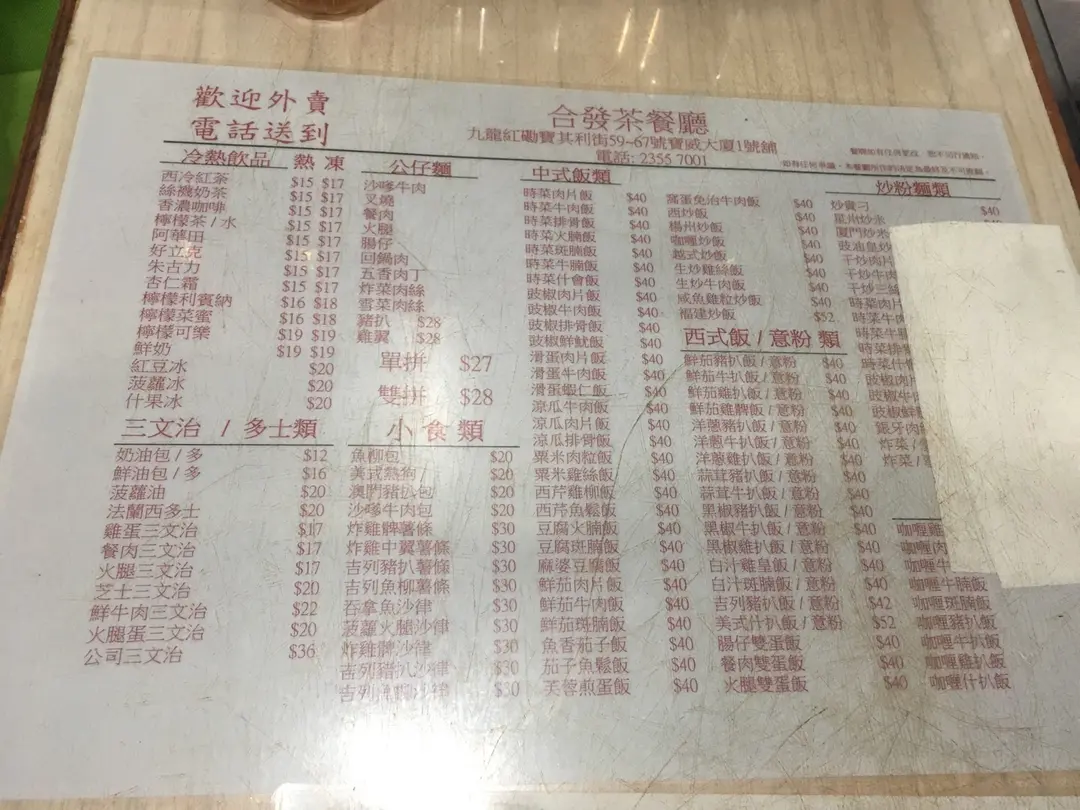 歡迎外賣
電話送到
合發茶餐廳
九龍紅磡寶其利街59~67號寶威大廈1號舖
電話: 2355 7001
冷熱飲品 熱 凍
西冷紅茶 $15 $17
絲襪奶茶 $15 $17
香濃咖啡 $15 $17
檸檬茶 / 水 $15 $17
阿華田 $15 $17
好立克 $15 $17
朱古力 $15 $17
杏仁霜 $15 $17
檸檬利賓納 $16 $18
檸檬菜蜜 $16 $18
檸檬可樂 $19 $19
鮮奶 $19 $19
紅豆冰 $20
菠蘿冰 $20
什果冰 $20
三文治 / 多士類
奶油包 / 多 $12
鮮油包 / 多 $16
菠蘿油 $20
法蘭西多士 $20
雞蛋三文治 $17
餐肉三文治 $17
火腿三文治 $17
芝士三文治 $20
鮮牛肉三文治 $22
火腿蛋三文治 $20
公司三文治 $36
公仔麵
沙嗲牛肉
叉燒
餐肉
火腿
腸仔
回鍋肉
五香肉丁
炸菜肉絲
雪菜肉絲
豬扒 $28
雞翼 $28
單拼 $27
雙拼 $28
小食類
魚柳包 $20
美式熱狗 / $20
澳門豬扒包 $20
沙嗲牛肉包 $20
炸雞髀薯條 $30
炸雞中翼薯條 $30
吉列豬扒薯條 $30
吉列魚柳薯條 $30
吞拿魚沙律 $30
菠蘿火腿沙律 $30
炸雞髀沙律 $30
吉列豬扒沙律 $30
吉列魚柳沙律 $30
中式飯類
時菜肉片飯 $40
時菜牛肉飯 $40
時菜排骨飯 $40
時菜火腩飯 $40
時菜斑腩飯 $40
時菜牛腩飯 $40
時菜什會飯 $40
豉椒肉片飯 $40
豉椒牛肉飯 $40
豉椒排骨飯 $40
豉椒鮮魷飯 $40
滑蛋肉片飯 $40
滑蛋牛肉飯 $40
滑蛋蝦仁飯 $40
涼瓜牛肉飯 $40
涼瓜肉片飯 $40
涼瓜排骨飯 $40
粟米肉粒飯 $40
粟米雞絲飯 $40
西芹雞柳飯 $40
西芹魚鬆飯 $40
豆腐火腩飯 $40
豆腐斑腩飯 $40
麻婆豆腐飯 $40
鮮茄肉片飯 $40
鮮茄牛肉飯 $40
鮮茄斑腩飯 $40
魚香茄子飯 $40
茄子魚鬆飯 $40
芙蓉煎蛋飯 $40
窩蛋免治牛肉飯 $40
西炒飯 $40
楊州炒飯 $40
咖喱炒飯 $40
越式炒飯 $40
生炒雞絲飯 $40
生炒牛肉飯 $40
咸魚雞粒炒飯 $40
福建炒飯 $52
西式飯 / 意粉 類
鮮茄豬扒飯 / 意粉 $40
鮮茄牛扒飯 / 意粉 $40
鮮茄雞髀飯 / 意粉 $40
洋蔥豬扒飯 / 意粉 $40
洋蔥牛扒飯 / 意粉 $40
洋蔥雞扒飯 / 意粉 $40
蒜茸豬扒飯 / 意粉 $40
蒜茸牛扒飯 / 意粉 $40
黑椒豬扒飯 / 意粉 $40
黑椒牛扒飯 / 意粉 $40
黑椒雞扒飯 / 意粉 $40
白汁雞皇飯 / 意粉 $40
白汁斑腩飯 / 意粉 $40
吉列豬扒飯 / 意粉 $42
美式什扒飯 / 意粉 $52
腸仔雙蛋飯 $40
餐肉雙蛋飯 $40
火腿雙蛋飯 $40
炒粉麵類
炒貴刁 $40
星州炒米
廈門炒米
豉油皇炒
干炒肉片
干炒牛肉
干炒三絲
時菜肉片
時菜牛
時菜排
時菜什
豉椒肉
豉椒牛
豉椒排
豉椒鮮
銀牙肉
炸菜 /
炸菜 /
咖喱雞
咖喱肉
咖喱牛
咖喱牛腩飯
咖喱斑腩飯
咖喱豬扒飯
咖喱牛扒飯
咖喱雞扒飯
咖喱什扒飯